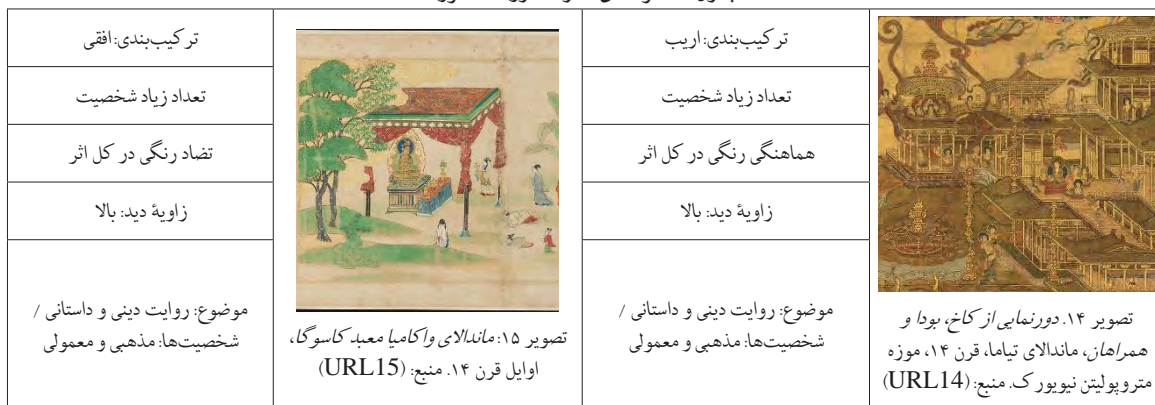 تصویر ۱۴. دورنمایی از کاخ، بودا و
همراهان، ماندالای تیاما، قرن ۱۴، موزه
متروپولیتن نیویورک. منبع: (URL14)
ترکیب‌بندی: اریب
تعداد زیاد شخصیت
هماهنگی رنگی در کل اثر
زاویهٔ دید: بالا
موضوع: روایت دینی و داستانی /
شخصیت‌ها: مذهبی و معمولی
تصویر ۱۵: ماندالای واکامیا معبد کاسوگا،
اوایل قرن ۱۴. منبع: (URL15)
ترکیب‌بندی: افقی
تعداد زیاد شخصیت
تضاد رنگی در کل اثر
زاویهٔ دید: بالا
موضوع: روایت دینی و داستانی /
شخصیت‌ها: مذهبی و معمولی